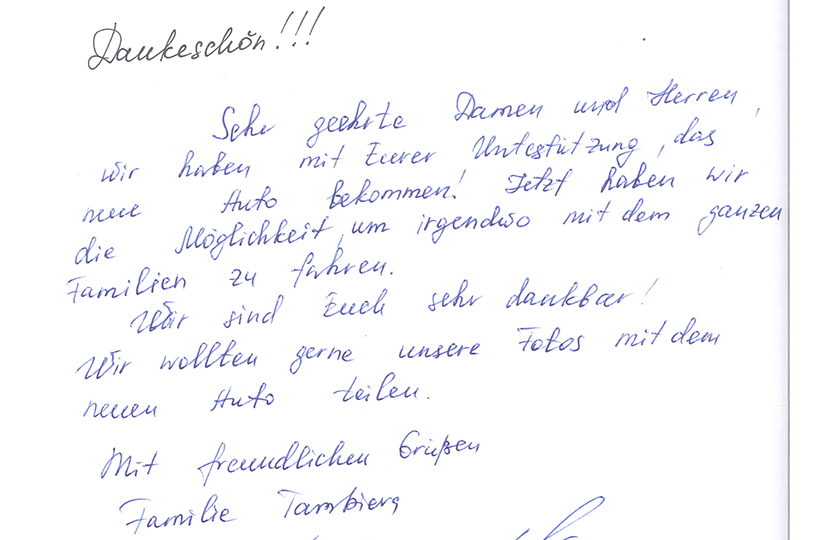 Dankeschön!!!
Sehr geehrte Damen und Herren,
wir haben mit Eurer Untestützung, das
neue Auto bekommen! Jetzt haben wir
die Möglichkeit, um irgendwo mit dem ganzen
Familien zu fahren.
Wir sind Euch sehr dankbar!
Wir wollten gerne unsere Fotos mit dem
neuen Auto teilen.
Mit freundlichen Grüßen
Familie